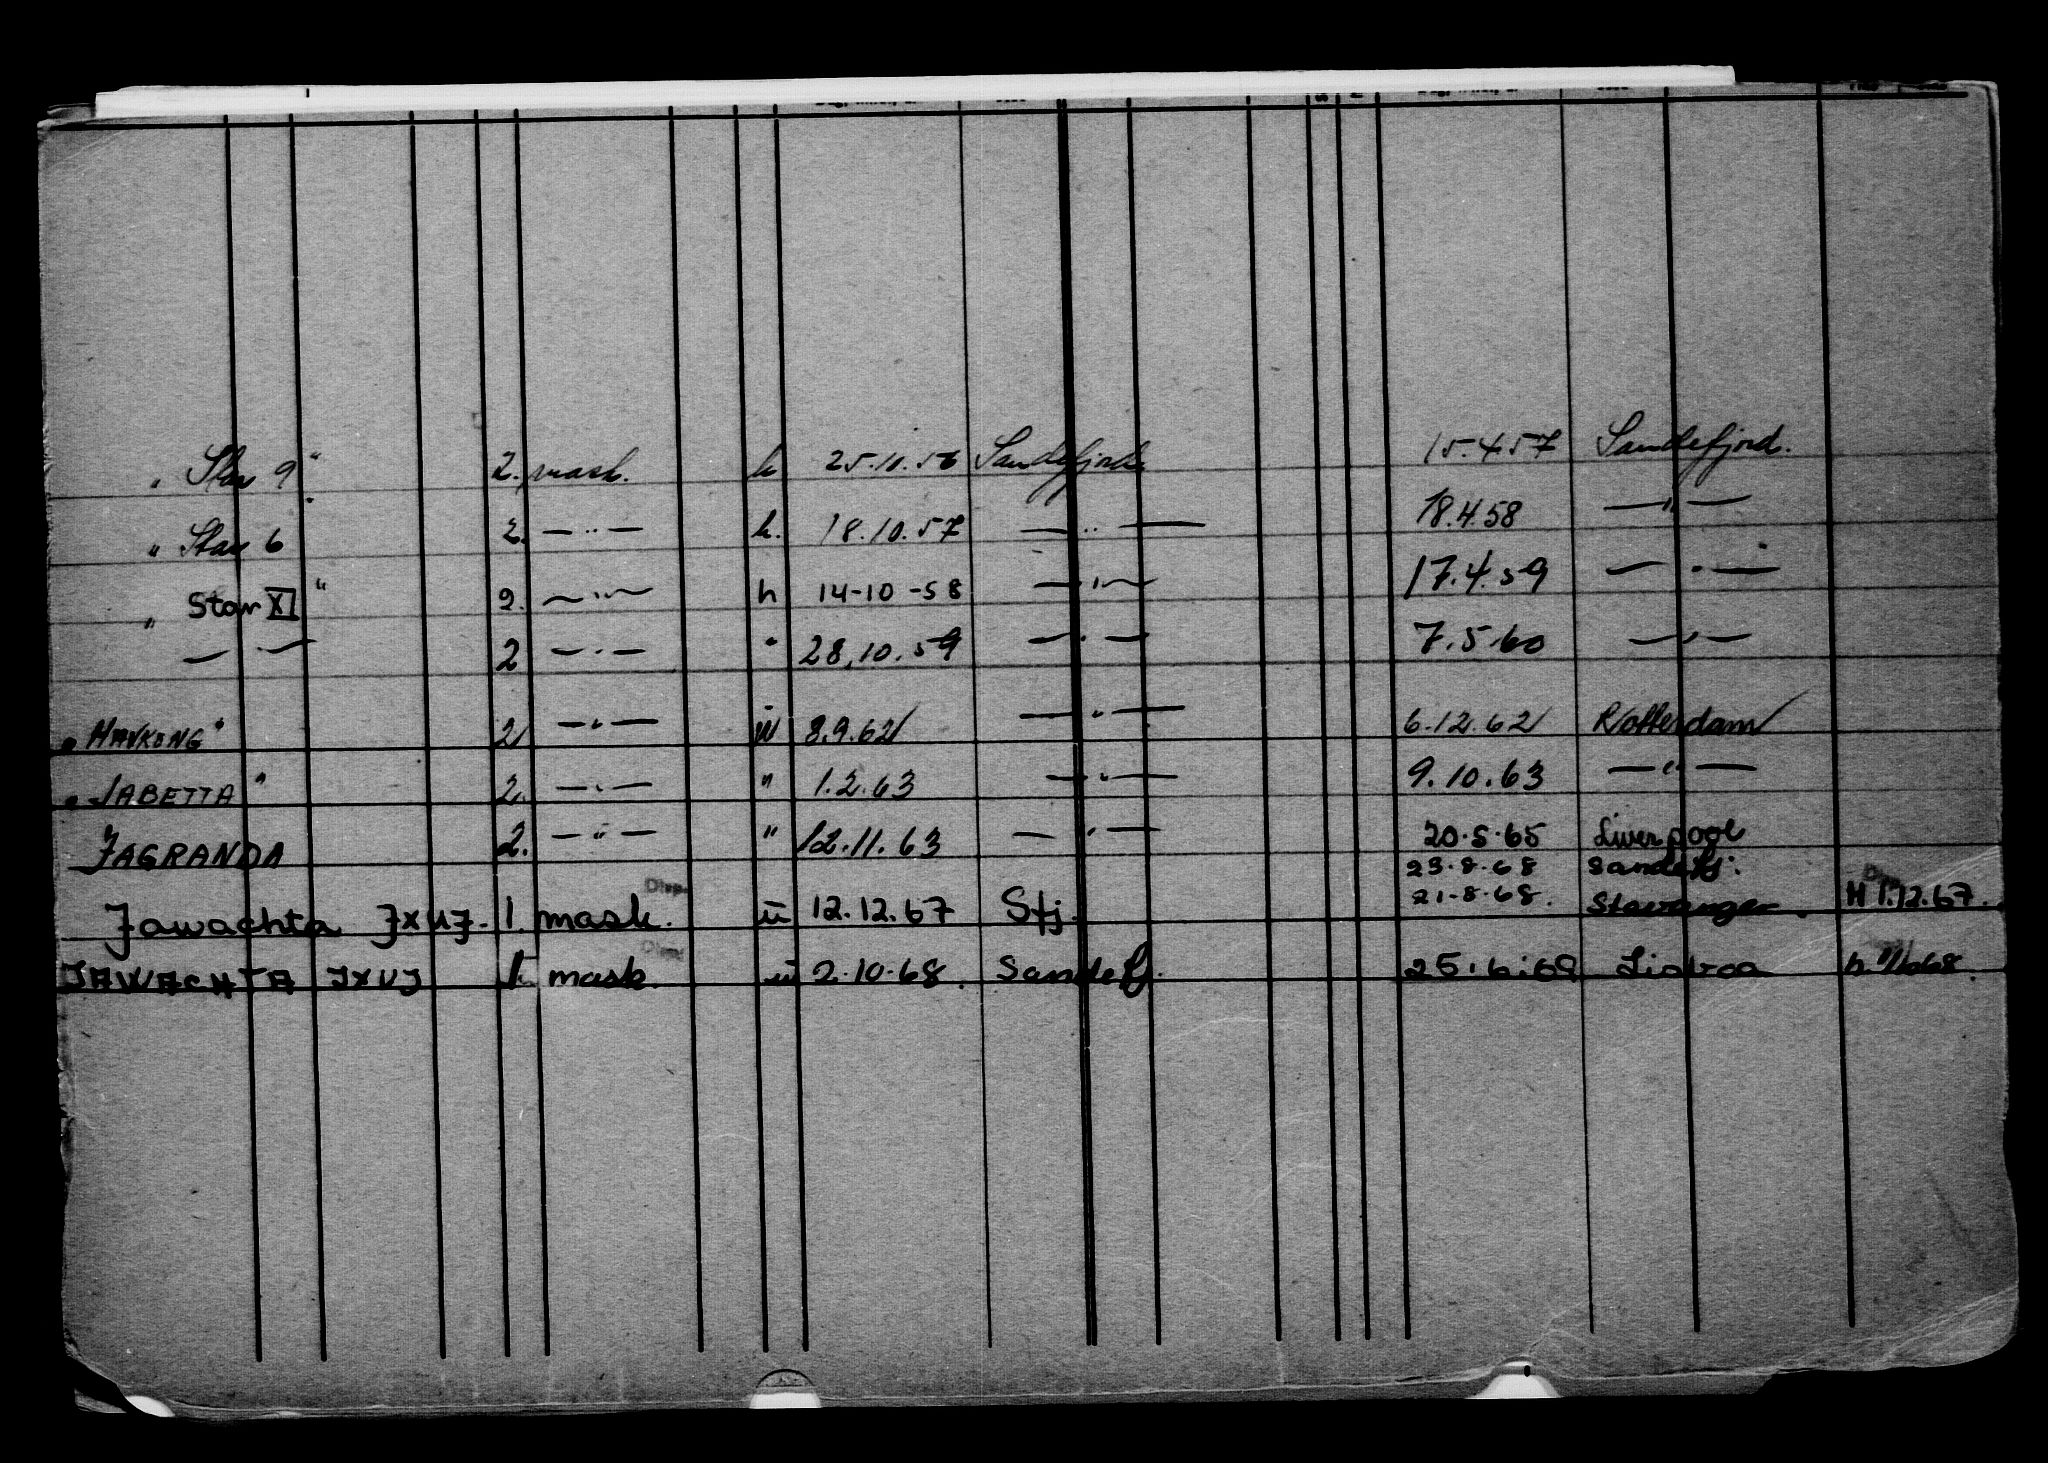 „ Star 9 “ 2. mask. h 25.10.56 Sandefjord. 15.4.57 Sandefjord.
„ Star 6 2. — „ — h. 18.10.57 — „ — 18.4.58 — „ —
„ Star XI “ 2. — „ — h 14-10-58 — „ — 17.4.59 — „ —
— „ — 2 — „ — „ 28.10.59 — „ — 7.5.60 — „ —
„ HAVKONG “ 2 — „ — u 8.9.62 — „ — 6.12.62 Rotterdam
„ JABETTA “ 2. — „ — " 1.2.63 — „ — 9.10.63 — „ —
JAGRANDA 2. — „ — " 12.11.63 — „ — 20.5.65 Liverpool
23.8.68 Sandefj.
Jawachta JXUJ. 1. mask. u 12.12.67 Sfj. 21.8.68. Stavanger. H 1.12.67.
JAWACHTA JXUJ 1. mask. u 2.10.68. Sandefj. 25.6.69 h.